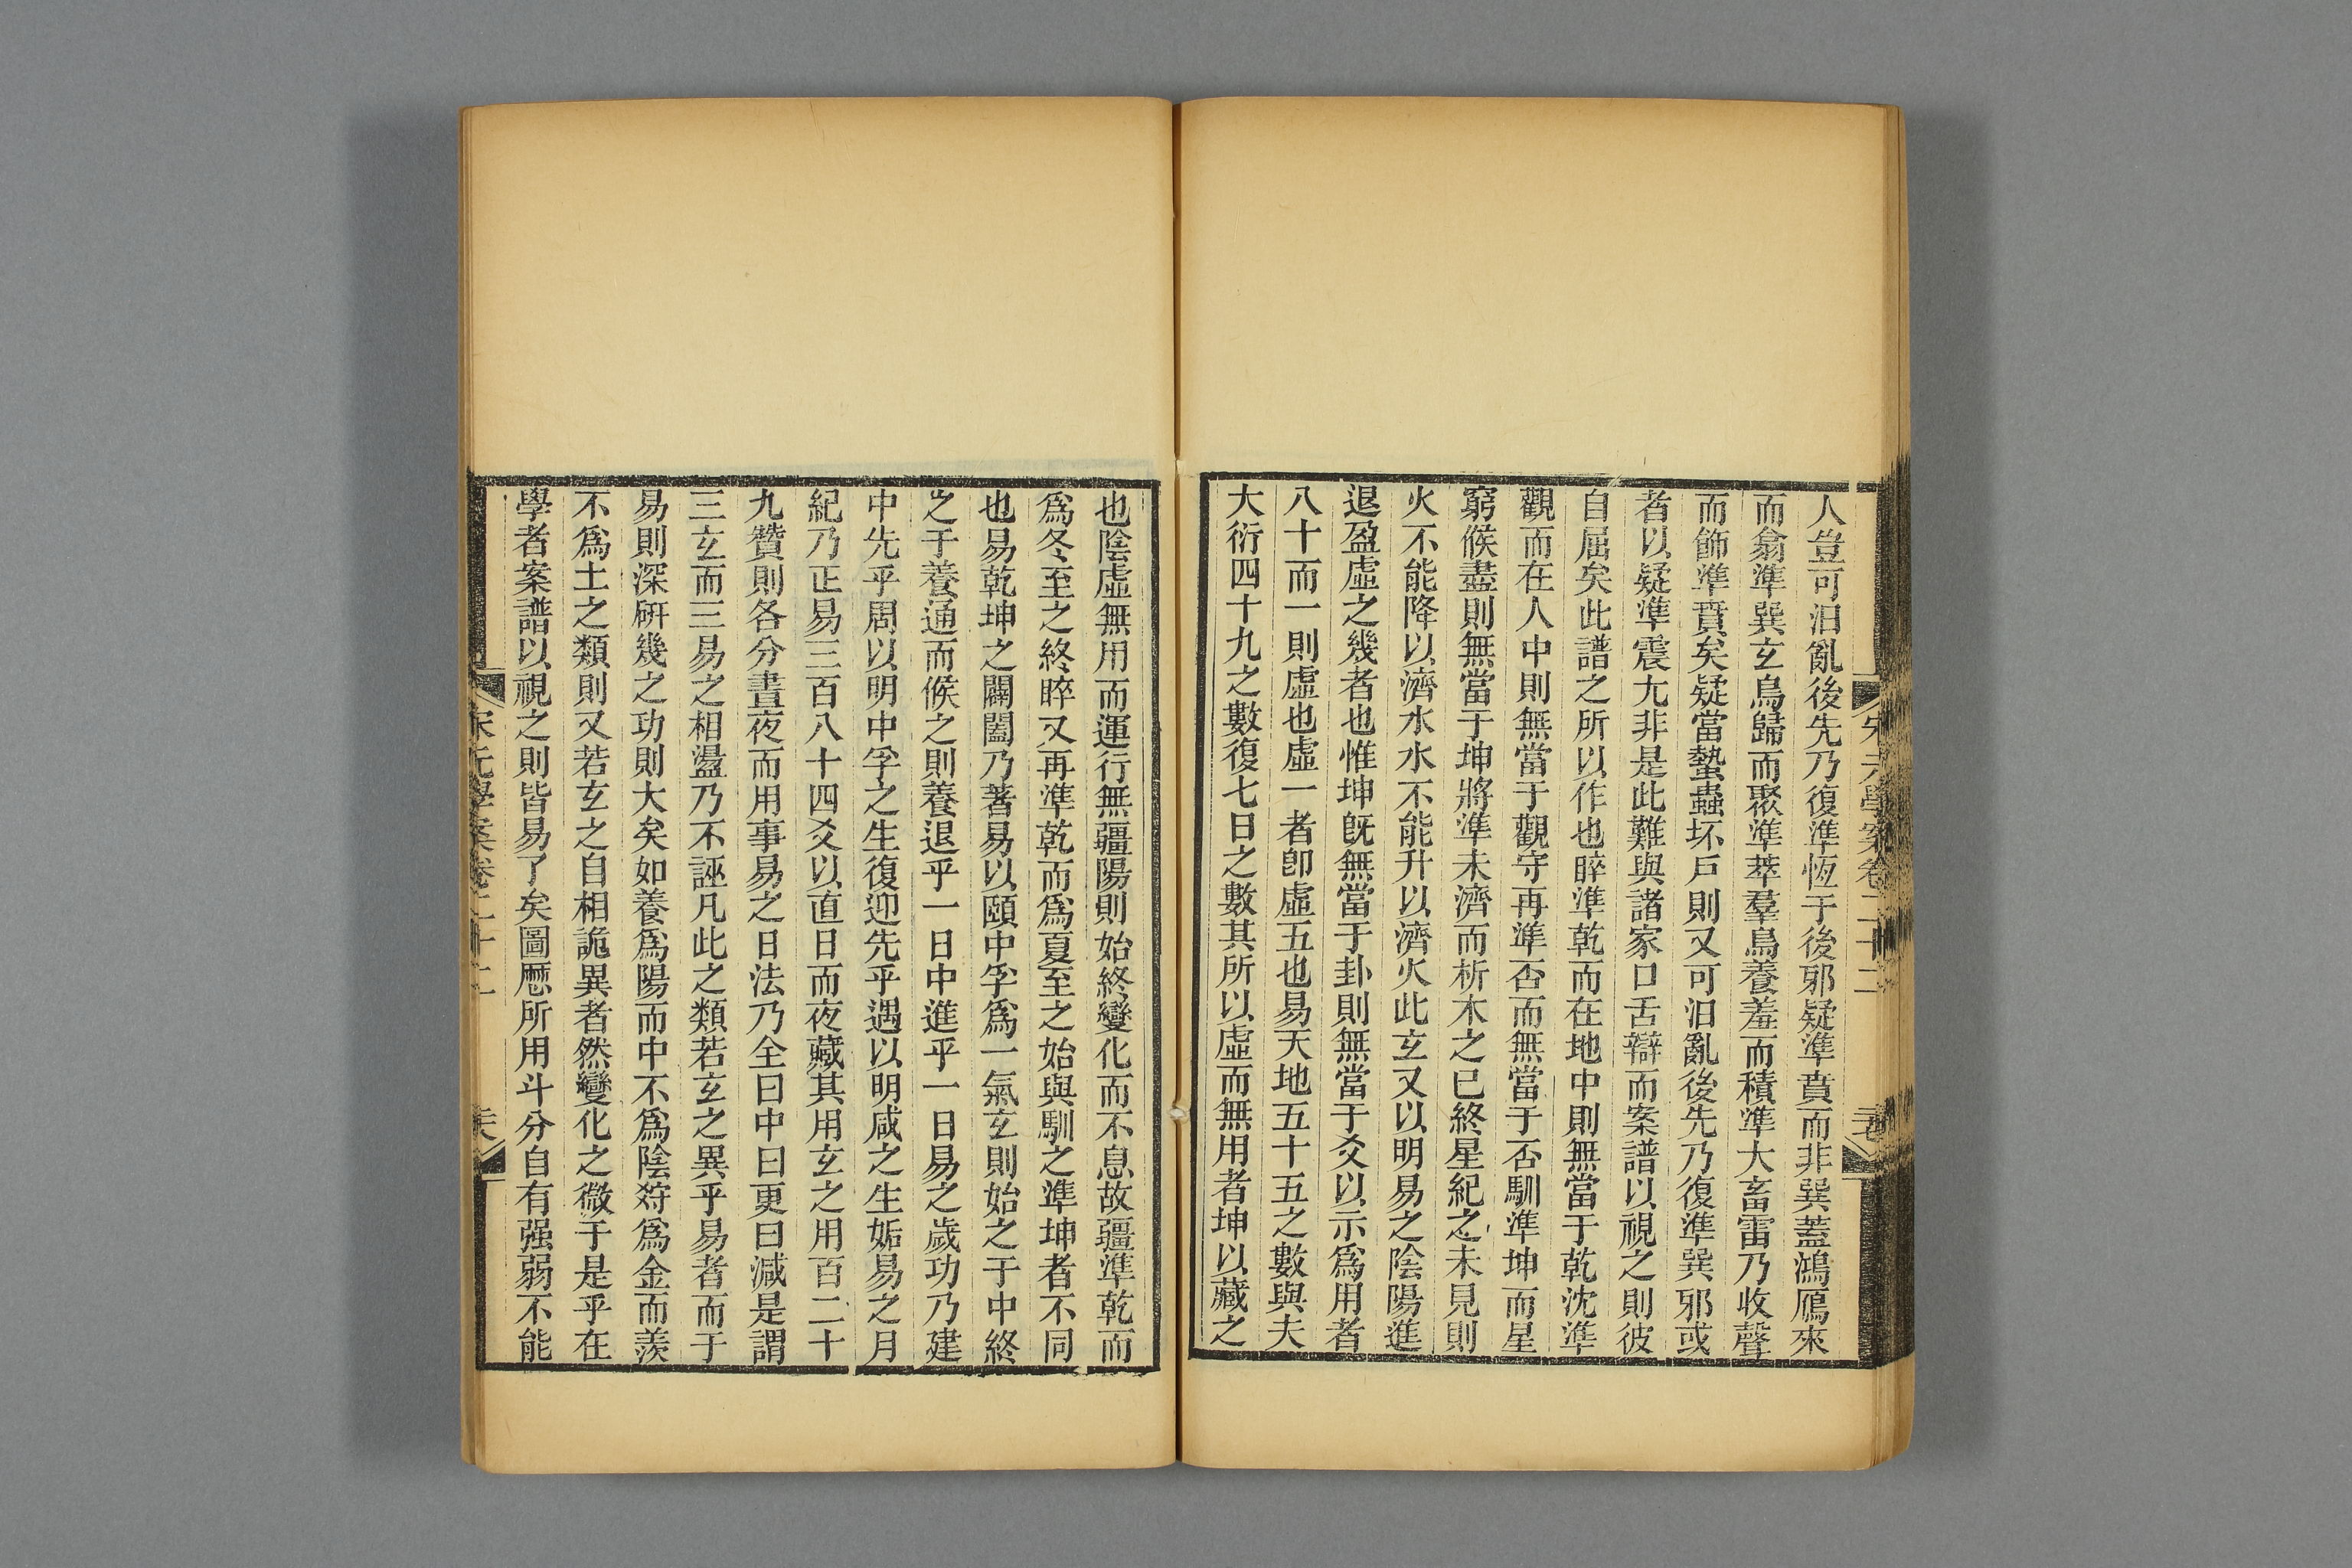 人豈可汨亂後先乃復準恆于後邪疑準賁而非巽蓋鴻鴈來
而翕準巽玄鳥歸而聚準萃羣鳥養羞而積準大畜雷乃收聲
而飾準賁矣疑當蟄蟲坏戶則又可汨亂後先乃復準巽邪或
者以疑準震尢非是此難與諸家口舌辯而案譜以視之則彼
自屈矣此譜之所以作也睟準乾而在地中則無當于乾沈準
觀而在人中則無當于觀守再準否而無當于否馴準坤而星
窮候盡則無當于坤將準未濟而析木之已終星紀之未見則
火不能降以濟水水不能升以濟火此玄又以明易之陰陽進
退盈虛之幾者也惟坤旣無當于卦則無當于爻以示爲用者
八十而一則虛也虛一者卽虛五也易天地五十五之數與夫
大衍四十九之數復七日之數其所以虛而無用者坤以藏之
也陰虛無用而運行無疆陽則始終變化而不息故疆準乾而
爲冬至之終睟又再準乾而爲夏至之始與馴之準坤者不同
也易乾坤之闢闔乃著易以頤中孚爲一氣玄則始之于中終
之于養通而候之則養退乎一日中進乎一日易之歲功乃建
中先乎周以明中孚之生復迎先乎遇以明咸之生姤易之月
紀乃正易三百八十四爻以直日而夜藏其用玄之用百二十
九贊則各分晝夜而用事易之日法乃全曰中曰更曰減是謂
三玄而三易之相盪乃不誣凡此之類若玄之異乎易者而于
易則深硏幾之功則大矣如養爲陽而中不爲陰狩爲金而羨
不爲土之類則又若玄之自相詭異者然變化之微于是乎在
學者案譜以視之則皆易了矣圖厯所用斗分自有强弱不能
宋元學案卷二十二